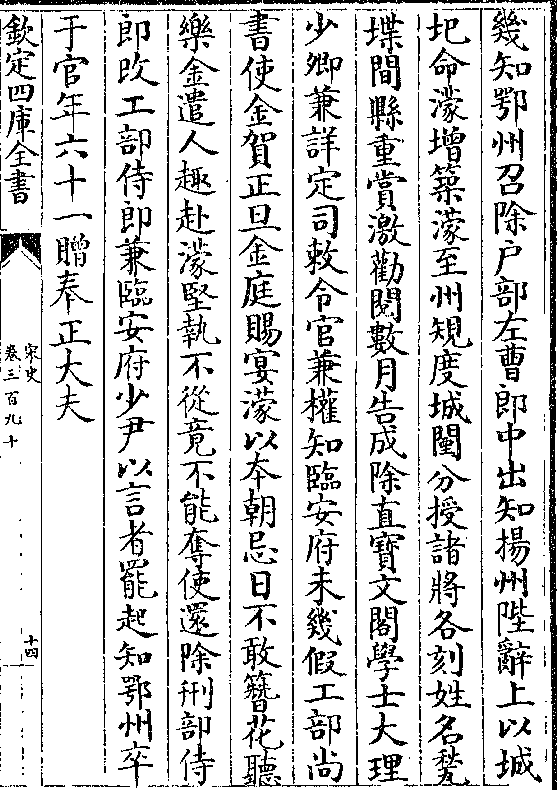 幾知鄂州召除户部左曹郎中出知揚州陛辭上以城
圯命濛增築濛至州規度城闉分授諸將各刻姓名甃
堞間縣重賞激勸閱數月告成除直寶文閣學士大理
少卿兼詳定司敕令官兼權知臨安府未幾假工部尚
書使金賀正旦金庭賜宴濛以本朝忌日不敢簪花聽
樂金遣人趣赴濛堅執不從竟不能奪使還除刑部侍
郎改工部侍郎兼臨安府少尹以言者罷起知鄂州卒
于官年六十一贈奉正大夫
欽定四庫全書
宋史
卷三百九十
十四